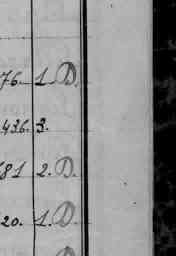 76. 1. D.
436. 3.
81 2. D.
20. 1. D.
D.